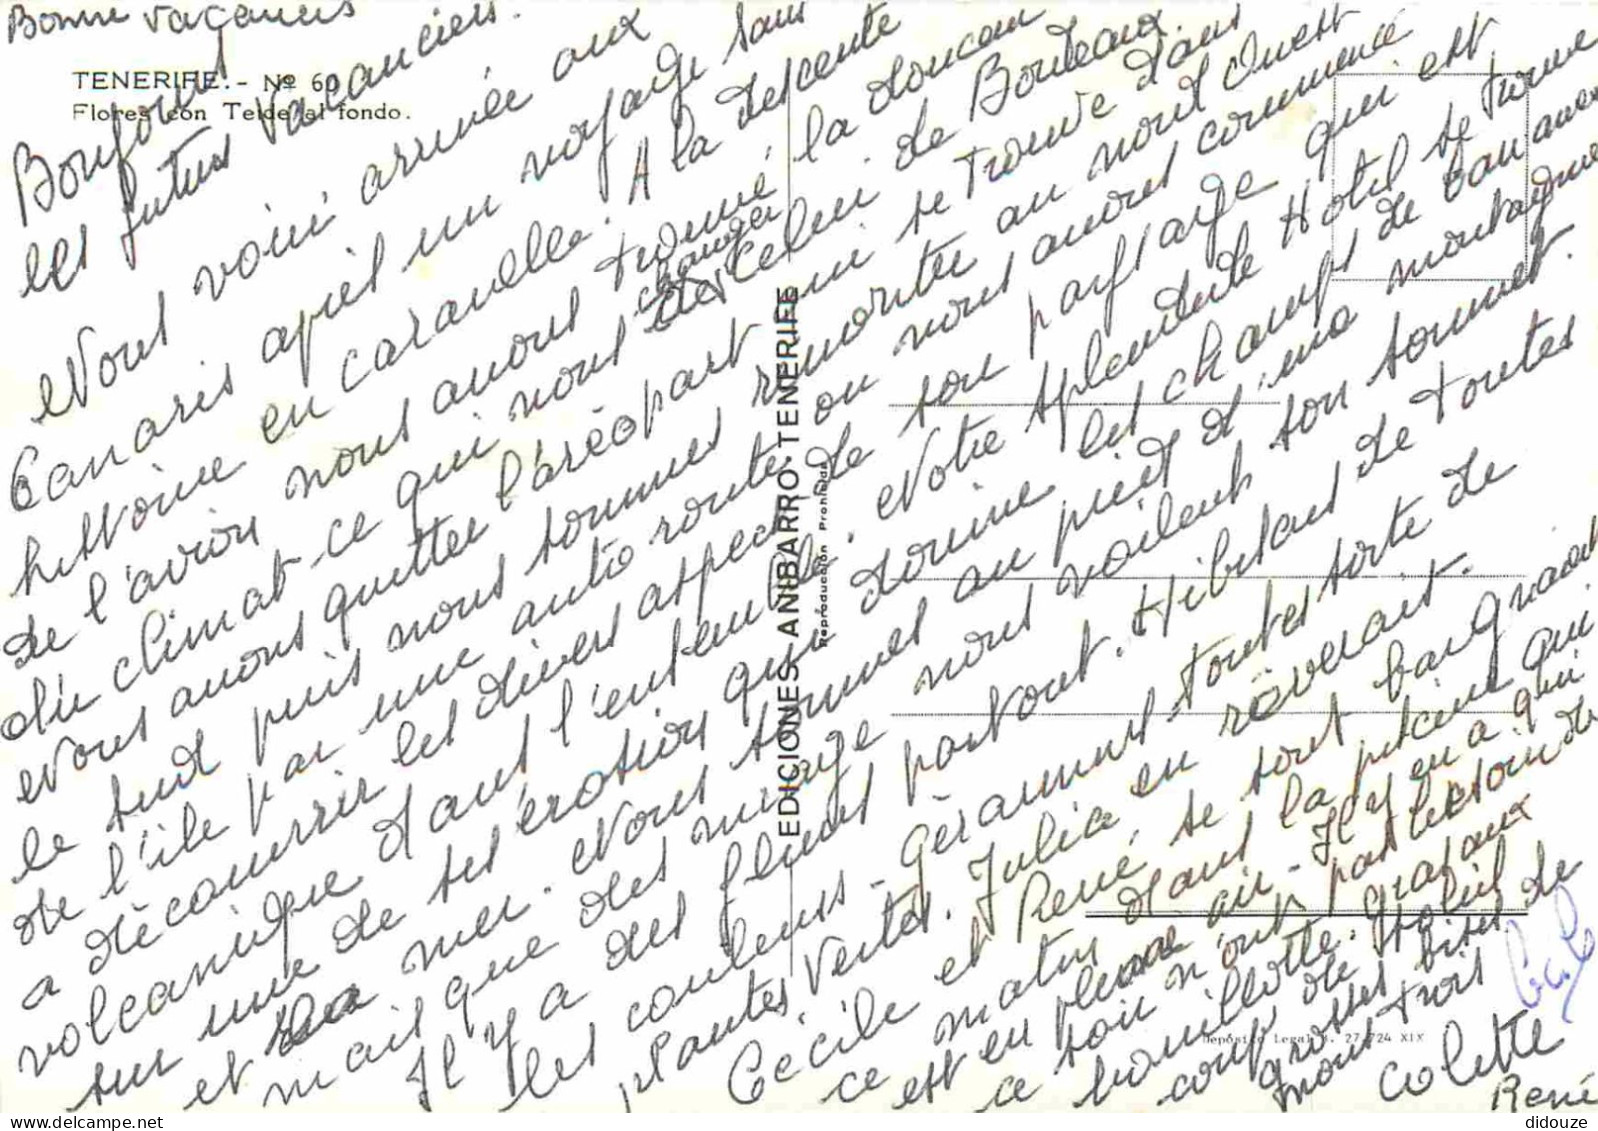 Bonne vacances
TENERIFE.- Nº 60
Flores con Teide al fondo.
Bonjour
les futurs vacanciers.
Nous voici arrivée aux
Canaris après un voyage sans
histoire en caravelle. A la descente
de l'avion nous avons trouvé la douceur
du climat ce qui nous change
de celui de Bordeaux.
Nous avons quitter l'aréoport qui se trouve dans
le sud puis nous sommes remonter au nord Ouest
de l'île par une auto route ou nous avons commencé
a découvrir les divers aspect de son paysage qui est
volcanique dans l'ensemble. Notre splendide Hotel se trouve
sur une de ses érosion qui domine les champs de bananes
et la mer. Nous sommes au pied d'une montagne
mais que des nuages nous voilent son sommet.
Il y a des fleurs partout. Hibiscus de toutes
les couleurs - géraniums toutes sorte de
plantes vertes. Julia en rêverait.
Cécile et René, se sont baigné
ce matin dans la piscine qui
est en plein air - Il y en a qui
ce soir n'ont pas besoin de
bouillotte.
coup de soleil
grosses bises de
nous trois
Colette
René
Cécile
EDICIONES ANIBARRO-TENERIFE
Reproducción Prohibida
Depósito Legal B. 27.724 XIX
didouze
delcampe.net